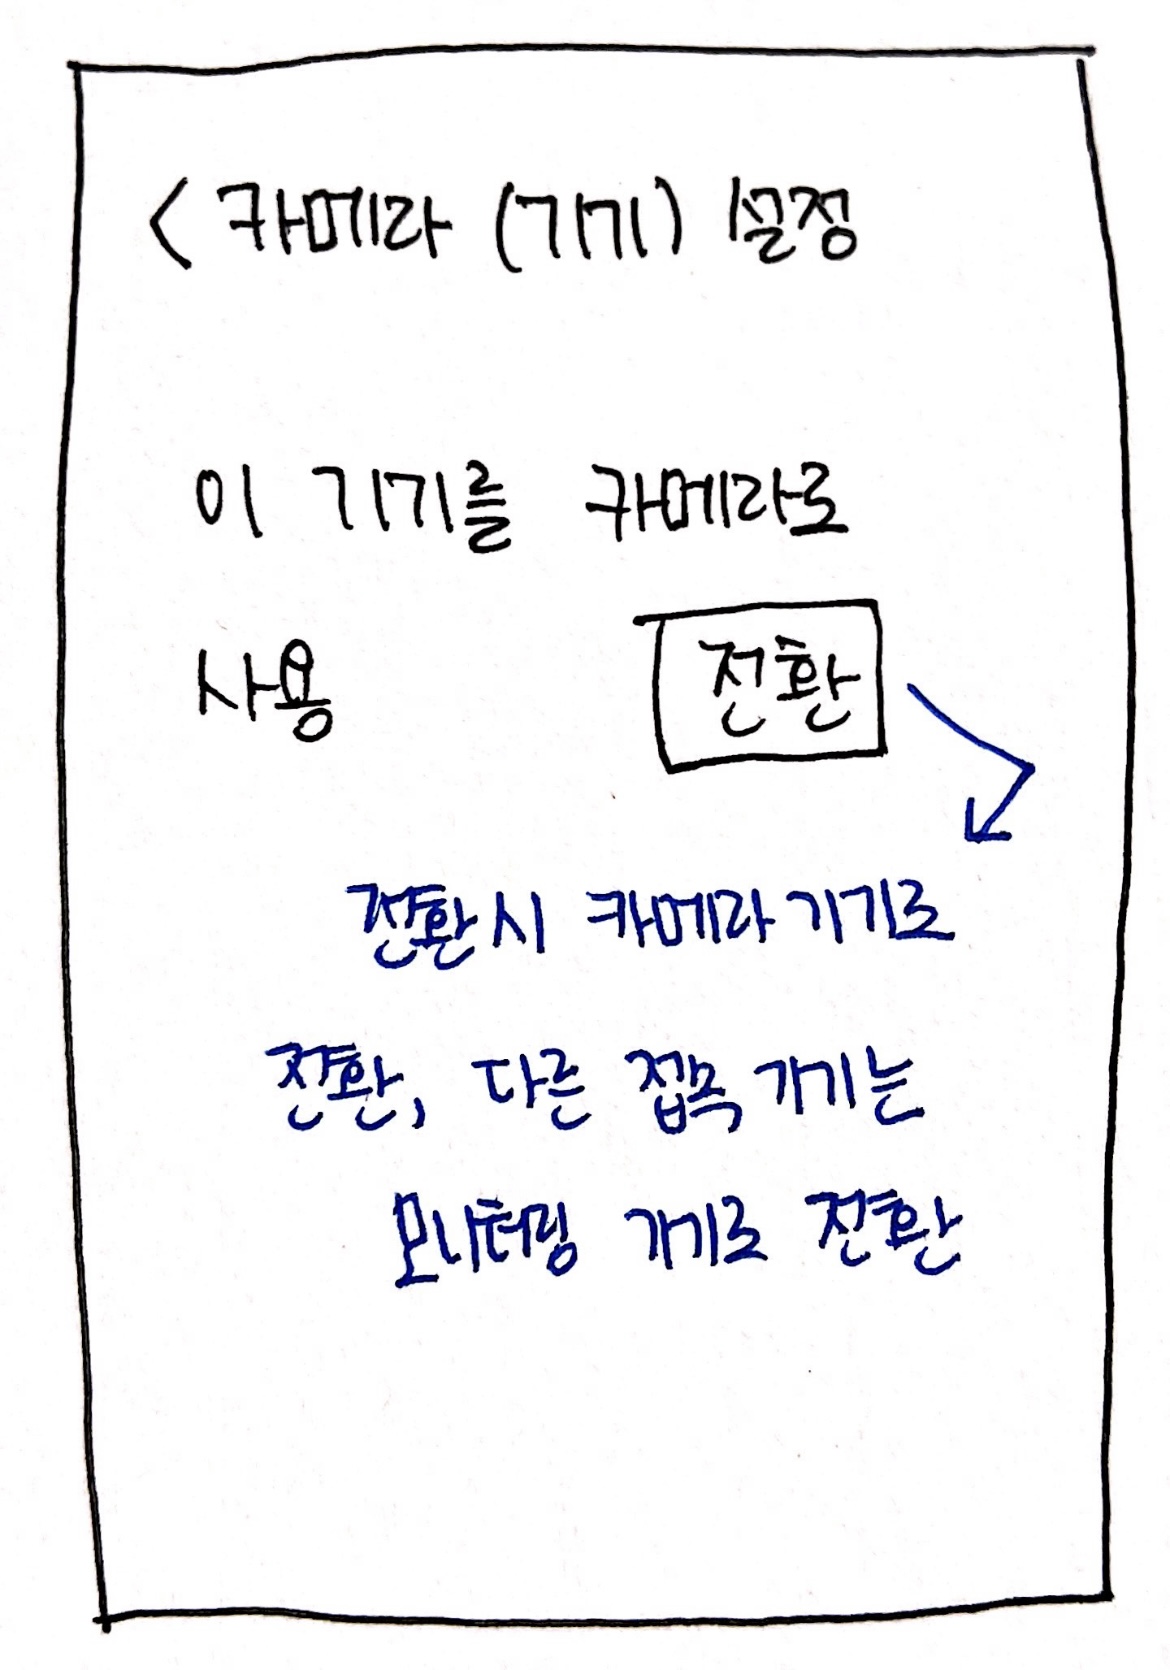 < 카메라 (기기) 설정
이 기기를 카메라로
사용 전환
전환시 카메라 기기로
전환, 다른 접속 기기는
모니터링 기기로 전환